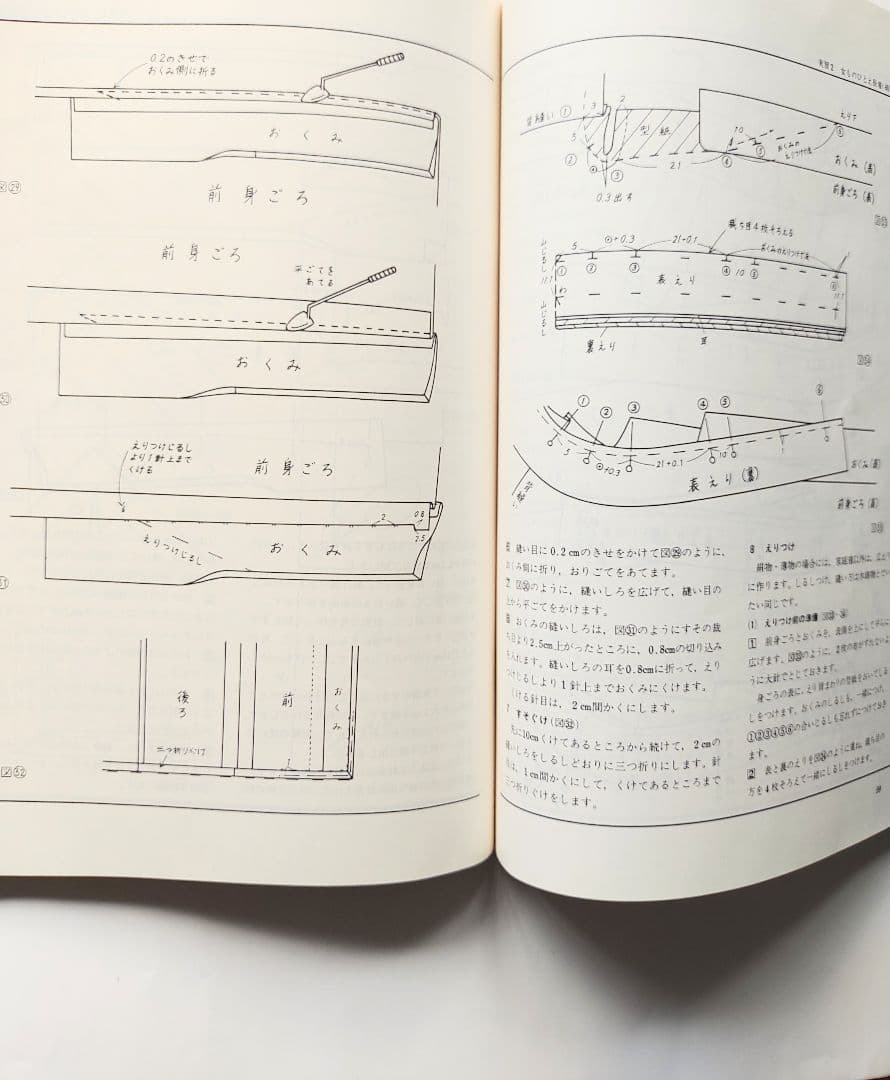 0.2のきせで
おくみ側に折る
おくみ
前身ごろ
図㉙
前身ごろ
平ごてを
あてる
おくみ
えりつけじるし
より1針上まで
くける
前身ごろ
2
0.8
2.5
えりつけじるし
おくみ
後ろ
前
おくみ
三つ折りぐけ
図㉜
1
3
2
①
型紙
5
②
③
21
④
10
⑤
⑥
えり下
おくみの
えりつけ寸法
おくみ(裏)
前身ごろ(裏)
0.3出す
裁ち目4枚そろえる
山じるし
5
⊙+0.3
21+0.1
おくみのえりつけ寸法
①
②
③
④
10
⑤
⑥
11.7
わ
表えり
11.7
山じるし
裏えり
耳
①
②
③
④
⑤
⑥
5
⊙+0.3
21+0.1
10
表えり(裏)
おくみ(裏)
前身ごろ(裏)
縫い目に0.2cmのきせをかけて図㉙のように,
おくみ側に折り, おりごてをあてます。
図㉚のように, 縫いしろを広げて, 縫い目の
上から平ごてをかけます。
おくみの縫いしろは, 図㉛のようにすその裁
ち目より2.5cm上がったところに, 0.8cmの切り込み
を入れます。縫いしろの耳を0.8cmに折って, えり
つけじるしより1針上までおくみにくけます。
くける針目は, 2cm間かくにします。
7 すそぐけ(図㉜)
先に10cmくけてあるところから続けて, 2cmの
縫いしろをしるしどおりに三つ折りにします。針
目は, 1cm間かくにして, くけてあるところまで
三つ折りぐけをします。
8 えりつけ
絹物・薄物の場合には,
に作ります。しるしつけ, 縫い方は木綿物とだい
たい同じです。
(1) えりつけ前の準備
1 前身ごろとおくみを, 表面を上にして平らに
広げます。図㉝のように, 2枚の布がずれないよ
うに大針でとじておきます。
身ごろの表に, えり肩まわりの型紙をおいてしる
しをつけます。おくみのしるしも, 一緒につけ,
①②③④⑤⑥の合いじるしも忘れずにつけておき
ます。
2 表と裏のえりを図㉞のように重ね, 裁ち目の
方を4枚そろえて一緒にしるしをつけます。